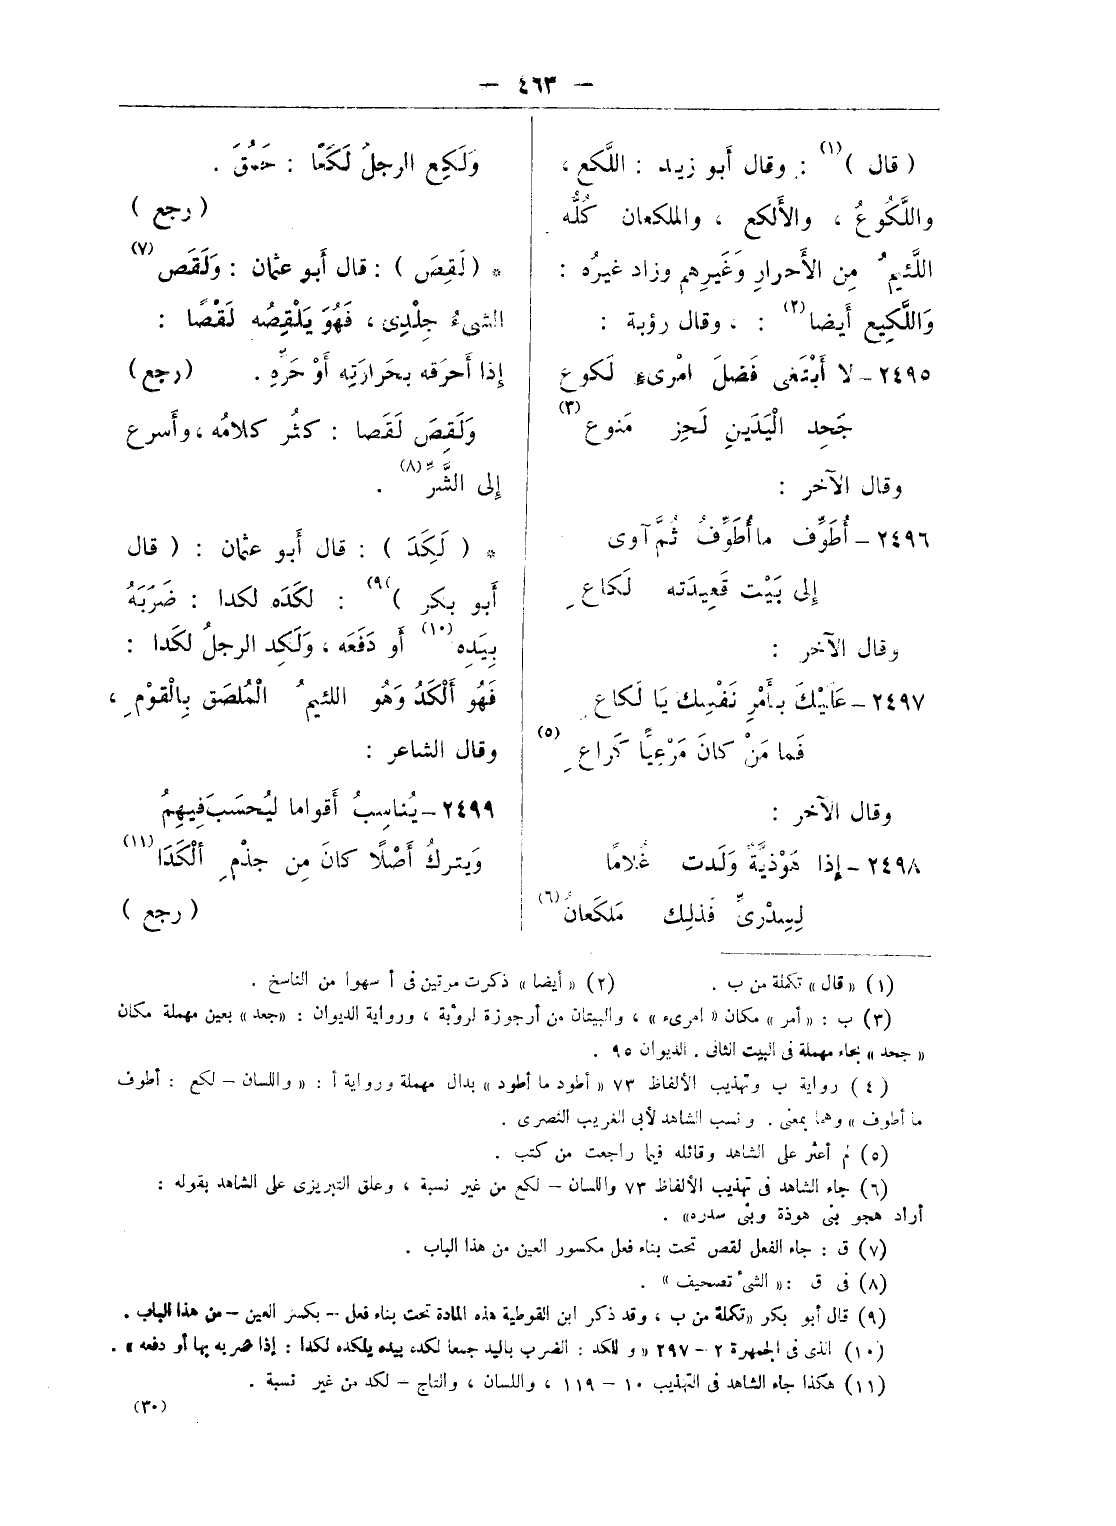 — ٤٦٣ —
( قال )(١) : وقال أبو زيد : اللَّكع ،
واللَّكُوعُ ، والأَلكع ، والملكعان كُلُّه
اللَّئيمُ مِن الأَحرارِ وَغَيرِهم وزاد غيرُه :
وَاللَّكِيع أَيضا(٢) : ، وقال رؤبة :
٢٤٩٥ – لا أَبْتَغى فَضلَ امْرىءٍ لَكوع
جَحِد الْيَدَينِ لَحِز مَنوع(٣)
وقال الآخر :
٢٤٩٦ – أُطَوِّف ما أُطَوِّفُ ثُمَّ آوى
إلى بَيْت قَعِيدَته لَكاعِ
وقال الآخر :
٢٤٩٧ – عَلَيْكَ بِأَمْرِ نَفْسِك يَا لَكاعِ
فَما مَنْ كانَ مَرْعِيًّا كَراعِ(٥)
وقال الآخر :
٢٤٩٨ – إذا هَوْذيَّةٌ وَلَدت غُلامًا
لِسِدْرىٍّ فَذلِك مَلكَعانُ(٦)
وَلَكِع الرجلُ لَكَعًا : حَمُقَ .
( رجع )
* ( لَقِصَ ) : قال أَبو عثمان : وَلَقَص(٧)
الشىءُ جِلْدِى ، فَهُوَ يَلْقِصُه لَقْصًا :
إذا أَحرَقه بحَرارَتِه أَوْ حَرِّهِ . (رجع)
وَلَقِصَ لَقَصا : كثُر كلامُه ، وأَسرع
إلى الشَّرِّ(٨) .
* ( لَكِدَ ) : قال أَبو عثمان : ( قال
أَبو بكر )(٩) : لكَدَه لكدا : ضَرَبَهُ
بِيَدِه(١٠) أَو دَفَعَه ، وَلَكِد الرجلُ لكَدا :
فَهُو أَلْكَدُ وَهُو اللئيمُ الْمُلصَق بِالْقوْمِ ،
وقال الشاعر :
٢٤٩٩ – يُناسِبُ أَقواما ليُحسَبَ فِيهِمُ
وَيَتركُ أَصْلًا كانَ مِن جذْمِ أَلْكَدَا(١١)
( رجع )
(١) « قال » تكملة من ب . (٢) « أيضا » ذكرت مرتين فى أ سهوا من الناسخ .
(٣) ب : « أمر » مكان « امرىء » ، والبيتان من أرجوزة لرؤبة ، ورواية الديوان : «جعد» بعين مهملة مكان
« جحد » بحاء مهملة فى البيت الثانى . الديوان ٩٥ .
(٤) رواية ب وتهذيب الألفاظ ٧٣ « أطود ما أطود » بدال مهملة ورواية أ : « واللسان – لكع : أطوف
ما أطوف » وهما بمعنى . ونسب الشاهد لأبى الغريب النصرى .
(٥) لم أعثر على الشاهد وقائله فيما راجعت من كتب .
(٦) جاء الشاهد فى تهذيب الألفاظ ٧٣ واللسان – لكع من غير نسبة ، وعلق التبريزى على الشاهد بقوله :
أراد هجو بنى هوذة وبنى سدره» .
(٧) ق : جاء الفعل لقص تحت بناء فعل مكسور العين من هذا الباب .
(٨) فى ق :« الشىء تصحيف » .
(٩) قال أبو بكر «تكملة من ب ، وقد ذكر ابن القوطية هذه المادة تحت بناء فعل – بكسر العين – من هذا الباب .
(١٠) الذى فى الجمهرة ٢ – ٢٩٧ « و للكد : الضرب باليد جمعا لكده بيده يلكده لكدا : إذا ضربه بها أو دفعه » .
(١١) هكذا جاء الشاهد فى التهذيب ١٠ – ١١٩ ، واللسان ، والتاج – لكد من غير نسبة .
(٣٠)